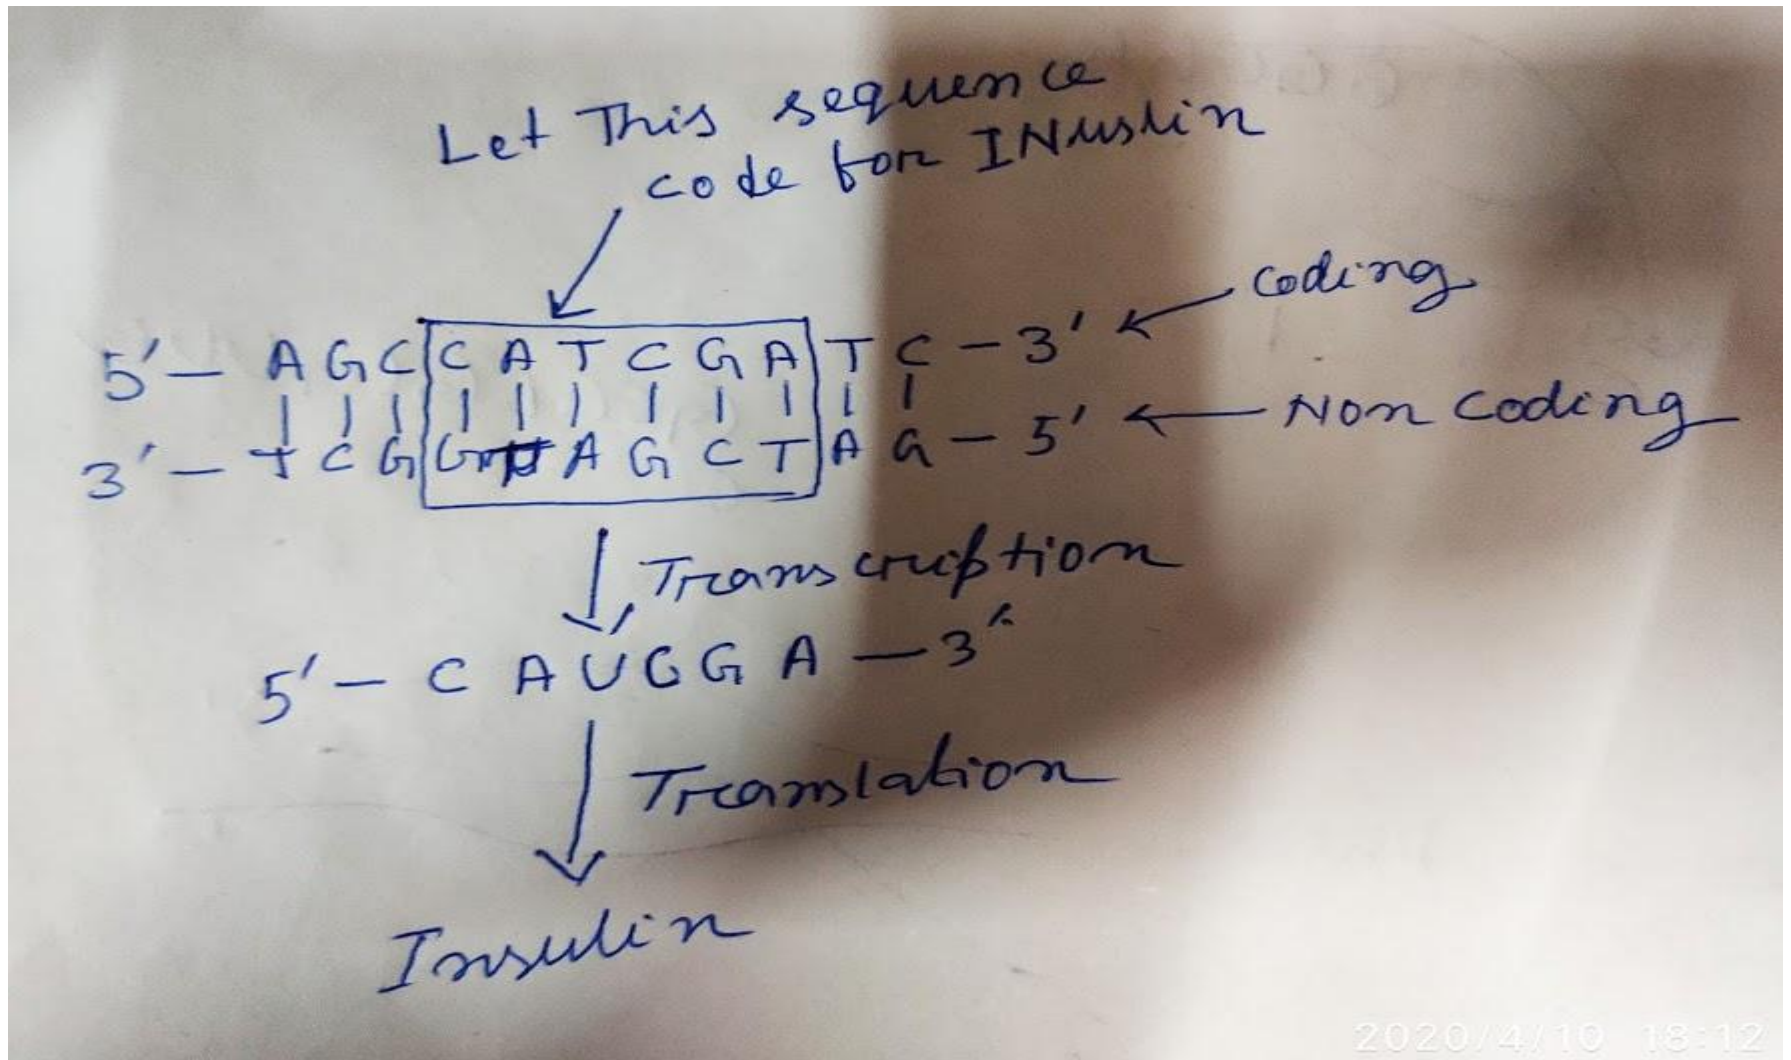 Let This sequence
code for INuslin
5' – A G C C A T C G A T C – 3' ← Coding
3' – T C G G A G C T A G – 5' ← Non Coding
Transcription
5' – C A U G G A – 3'
Translation
Insulin
2020/4/10 18:12